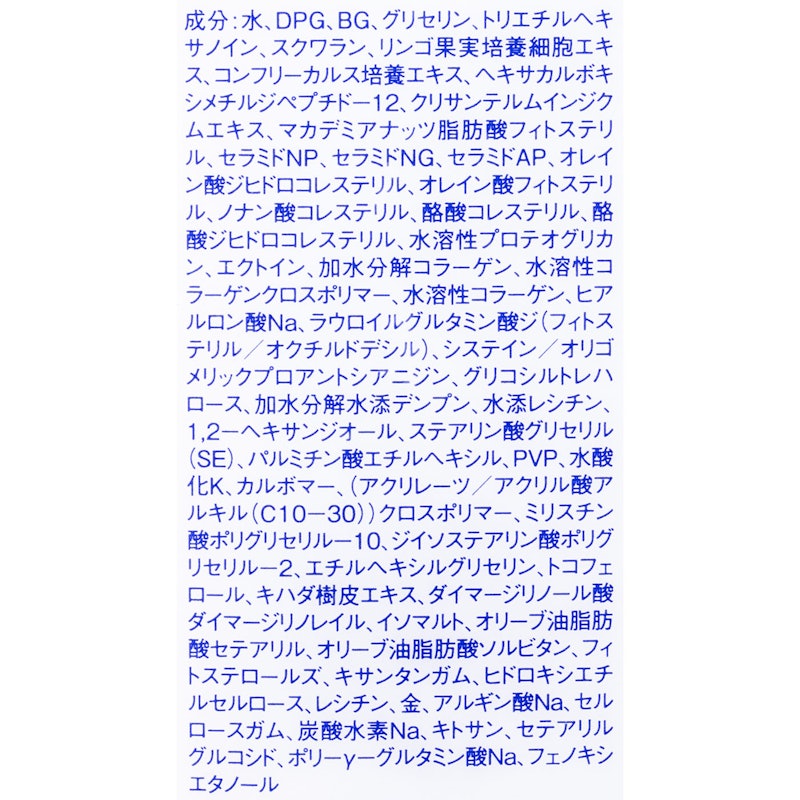 成分：水、DPG、BG、グリセリン、トリエチルヘキ
サノイン、スクワラン、リンゴ果実培養細胞エキ
ス、コンフリーカルス培養エキス、ヘキサカルボキ
シメチルジペプチド－12、クリサンテルムインジク
ムエキス、マカデミアナッツ脂肪酸フィトステリ
ル、セラミドNP、セラミドNG、セラミドAP、オレイ
ン酸ジヒドロコレステリル、オレイン酸フィトステリ
ル、ノナン酸コレステリル、酪酸コレステリル、酪
酸ジヒドロコレステリル、水溶性プロテオグリカ
ン、エクトイン、加水分解コラーゲン、水溶性コ
ラーゲンクロスポリマー、水溶性コラーゲン、ヒア
ルロン酸Na、ラウロイルグルタミン酸ジ（フィトス
テリル／オクチルドデシル）、システイン／オリゴ
メリックプロアントシアニジン、グリコシルトレハ
ロース、加水分解水添デンプン、水添レシチン、
1,2－ヘキサンジオール、ステアリン酸グリセリル
（SE）、パルミチン酸エチルヘキシル、PVP、水酸
化K、カルボマー、（アクリレーツ／アクリル酸ア
ルキル（C10－30））クロスポリマー、ミリスチン
酸ポリグリセリル－10、ジイソステアリン酸ポリグ
リセリル－2、エチルヘキシルグリセリン、トコフェ
ロール、キハダ樹皮エキス、ダイマージリノール酸
ダイマージリノレイル、イソマルト、オリーブ油脂肪
酸セテアリル、オリーブ油脂肪酸ソルビタン、フィ
トステロールズ、キサンタンガム、ヒドロキシエチ
ルセルロース、レシチン、金、アルギン酸Na、セル
ロースガム、炭酸水素Na、キトサン、セテアリル
グルコシド、ポリ－γ－グルタミン酸Na、フェノキシ
エタノール